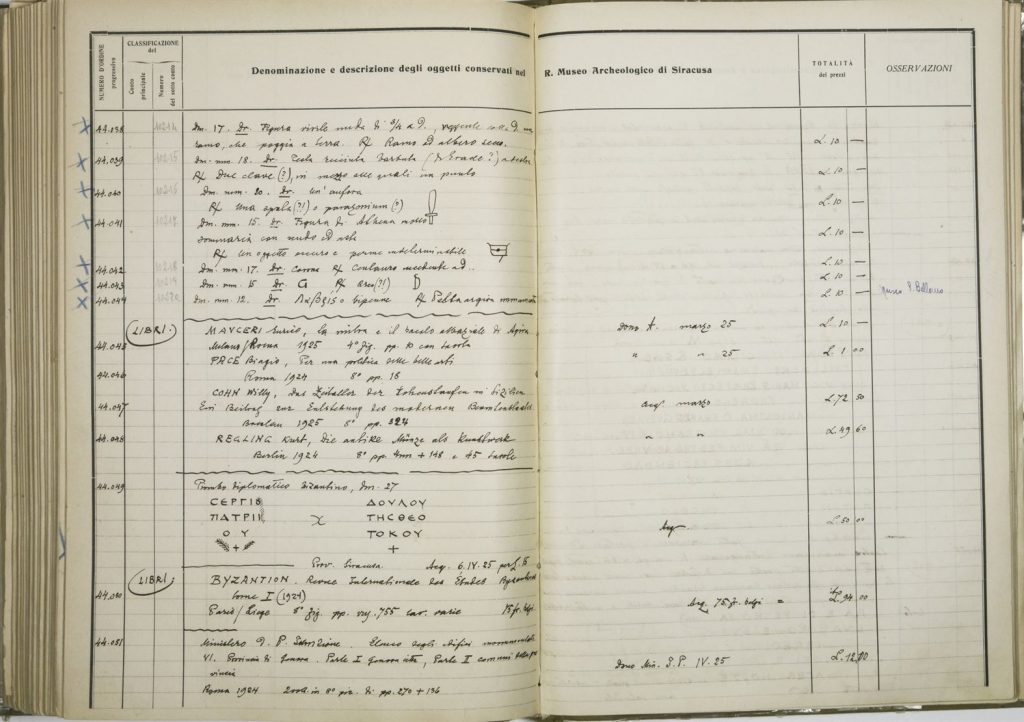 NUMERO D'ORDINE progressivo
CLASSIFICAZIONE del
Conto principale
Numero del sotto conto
Denominazione e descrizione degli oggetti conservati nel R. Museo Archeologico di Siracusa
TOTALITÀ dei prezzi
OSSERVAZIONI
44.038 Dm. 17. Dr. Figura virile nuda di 3/4 a D.,
ramo, che poggia a terra. R/ Ramo d'albero secco. L. 10 —
44.039 Dm. mm. 18. Dr. Testa barbata
R/ Due clave (?), in mezzo alle quali un punto L. 10 —
44.040 Dm. mm. 20. Dr. Un'anfora
R/ Una spada (?!) o parazonium (?) L. 10 —
44.041 Dm. mm. 15. Dr. Figura di Athena
sommaria con scudo ed asta L. 10 —
R/ Un oggetto oscuro e forse indeterminabile
44.042 Dm. mm. 17. Dr. R/ Centauro L. 10 —
44.043 Dm. mm. 15 Dr. R/ arco (?!) L. 10 —
44.044 Dm. mm. 12. Dr. o bipenne R/ Pelta L. 10 — Museo P. Bellomo
LIBRI.
MAUCERI Enrico, la mitra e il sacello abbaziale di Agira Dono A. marzo 25 L. 10 —
44.045 Milano/Roma 1925 4° fig. pp. 10 con tavola
PACE Biagio, Per una politica delle belle arti " " 25 L. 1 00
44.046 Roma 1924 8° pp. 16
COHN Willy, Das Zeitalter der Hohenstaufen in Sizilien
44.047 Ein Beitrag zur Entstehung des modernen Beamtenstaates acq. marzo L. 72 50
Breslau 1925 8° pp. 324
44.048 REGLING Kurt, Die antike Münze als Kunstwerk " " L. 49 60
Berlin 1924 8° pp. + 148 e 45 tavole
44.049 Piombo diplomatico bizantino, dm. 27
CЄPΓIȢ ΔΟΥΛΟΥ
ΠΑΤΡΙΚ ΤΗCΘΕΟ
ΟΥ ΤΟΚΟΥ
+ +
Acq. L. 50 00
Prov. Siracusa Acq. 6.IV.25 per L. 15
LIBRI
BYZANTION. Revue Internationale des Études Byzantines
44.050 tome I (1924) Acq. 75 fr. belgi = L. 94 00
Paris/Liège 8° fig. pp. 755 tav. varie 75 fr. belgi
44.051 Ministero d. P. Istruzione. Elenco degli edifici monumentali
VI. Provincia di Genova. Parte I Genova città, Parte II comuni della pro
vincia Dono Min. I. P. IV. 25 L. 12.00
Roma 1924 2 voll. in 8° picc. di pp. 270 + 136